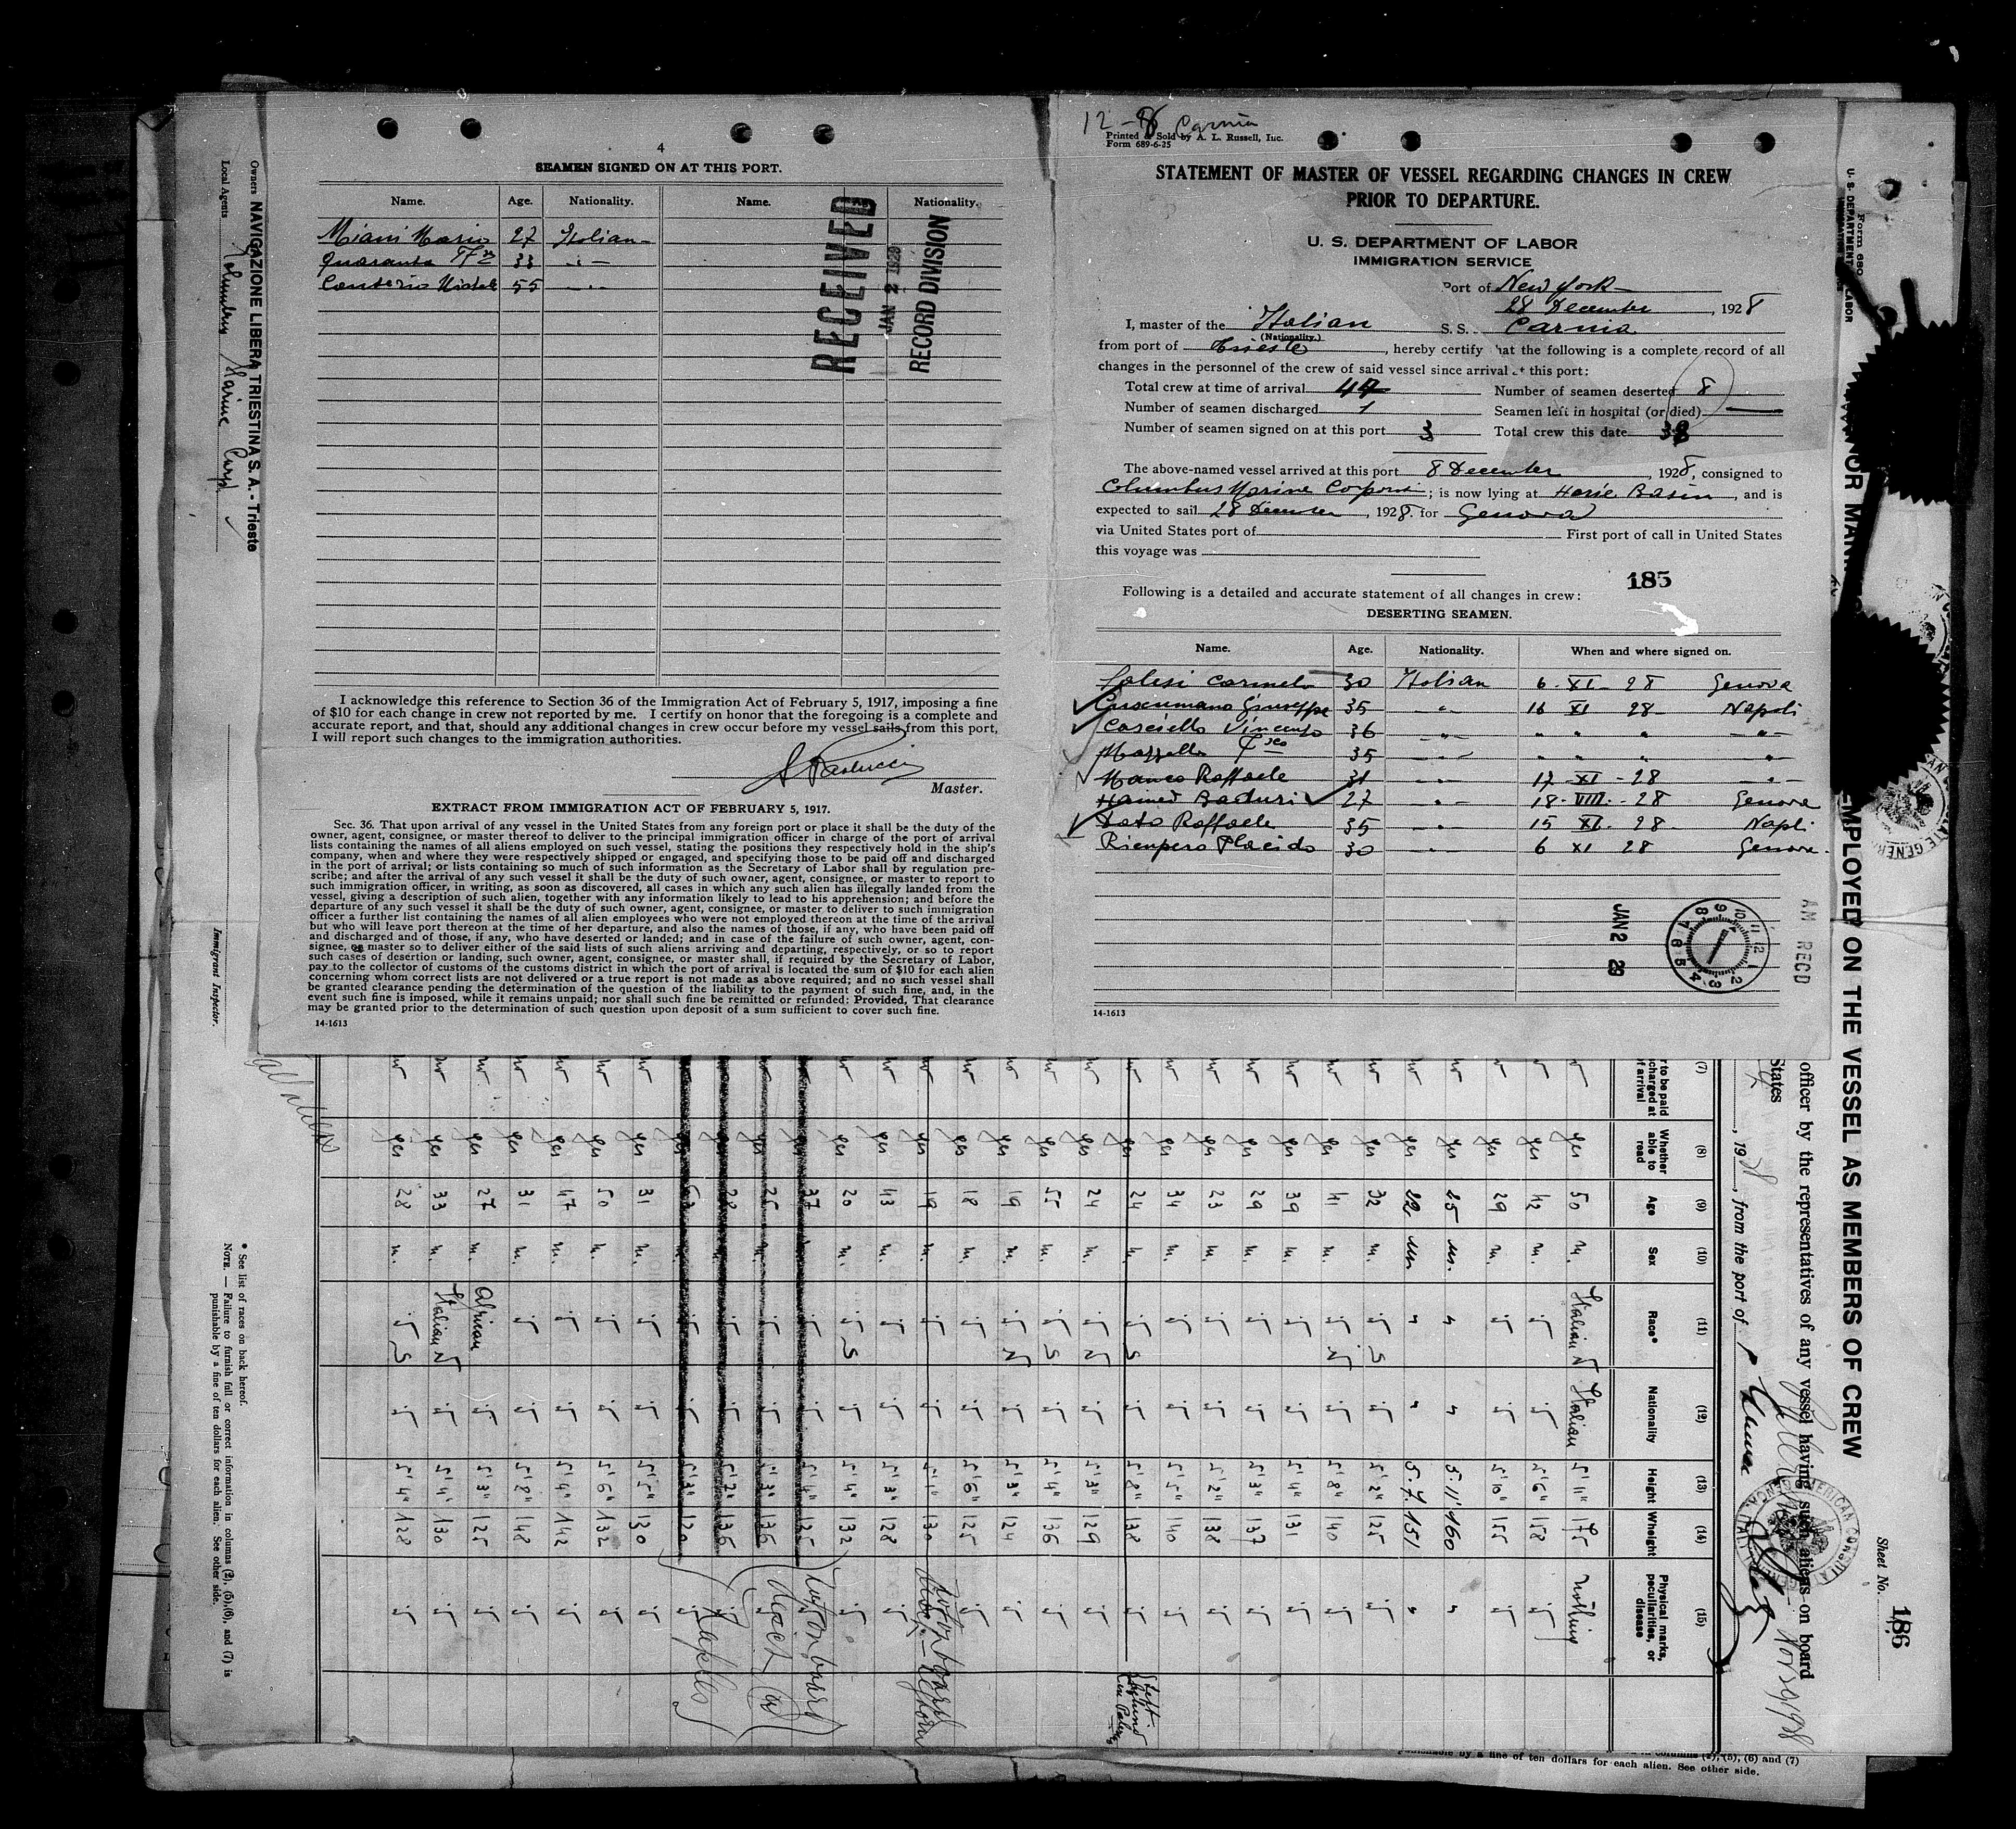 4
SEAMEN SIGNED ON AT THIS PORT.
Name. Age. Nationality. Name. Nationality.
Miani Mario 27 Italian
Quaranta 33
Michele 55
RECEIVED
JAN 2 1929
RECORD DIVISION
I acknowledge this reference to Section 36 of the Immigration Act of February 5, 1917, imposing a fine
of $10 for each change in crew not reported by me. I certify on honor that the foregoing is a complete and
accurate report, and that, should any additional changes in crew occur before my vessel sails from this port,
I will report such changes to the immigration authorities.
Master.
EXTRACT FROM IMMIGRATION ACT OF FEBRUARY 5, 1917.
Sec. 36. That upon arrival of any vessel in the United States from any foreign port or place it shall be the duty of the
owner, agent, consignee, or master thereof to deliver to the principal immigration officer in charge of the port of arrival
lists containing the names of all aliens employed on such vessel, stating the positions they respectively hold in the ship's
company, when and where they were respectively shipped or engaged, and specifying those to be paid off and discharged
in the port of arrival; or lists containing so much of such information as the Secretary of Labor shall by regulation pre-
scribe; and after the arrival of any such vessel it shall be the duty of such owner, agent, consignee, or master to report to
such immigration officer, in writing, as soon as discovered, all cases in which any such alien has illegally landed from the
vessel, giving a description of such alien, together with any information likely to lead to his apprehension; and before the
departure of any such vessel it shall be the duty of such owner, agent, consignee, or master to deliver to such immigration
officer a further list containing the names of all alien employees who were not employed thereon at the time of the arrival
but who will leave port thereon at the time of her departure, and also the names of those, if any, who have been paid off
and discharged and of those, if any, who have deserted or landed; and in case of the failure of such owner, agent, con-
signee, or master so to deliver either of the said lists of such aliens arriving and departing, respectively, or so to report
such cases of desertion or landing, such owner, agent, consignee, or master shall, if required by the Secretary of Labor,
pay to the collector of customs of the customs district in which the port of arrival is located the sum of $10 for each alien
concerning whom correct lists are not delivered or a true report is not made as above required; and no such vessel shall
be granted clearance pending the determination of the question of the liability to the payment of such fine, and, in the
event such fine is imposed, while it remains unpaid; nor shall such fine be remitted or refunded: Provided, That clearance
may be granted prior to the determination of such question upon deposit of a sum sufficient to cover such fine.
14-1613
12-8 Carnia
Printed & Sold by A. L. Russell, Inc.
Form 689-6-25
STATEMENT OF MASTER OF VESSEL REGARDING CHANGES IN CREW
PRIOR TO DEPARTURE.
U. S. DEPARTMENT OF LABOR
IMMIGRATION SERVICE
Port of New York
28 December, 1928
I, master of the Italian S. S. Carnia
(Nationality.)
from port of Trieste, hereby certify that the following is a complete record of all
changes in the personnel of the crew of said vessel since arrival at this port:
Total crew at time of arrival 44 Number of seamen deserted 8
Number of seamen discharged 1 Seamen left in hospital (or died)
Number of seamen signed on at this port 3 Total crew this date 38
The above-named vessel arrived at this port 8 December, 1928, consigned to
Columbus Marine; is now lying at Basin, and is
expected to sail 28 December, 1928. for Genova
via United States port of First port of call in United States
this voyage was
185
Following is a detailed and accurate statement of all changes in crew:
DESERTING SEAMEN.
Name. Age. Nationality. When and where signed on.
Carmelo 30 Italian 6 XI 28 Genova
Cuscumano Giuseppe 35 16 XI 28 Napoli
Casciello Vincenzo 36
Mazzella 35
Manco Raffaele 31 17 XI 28
Hamed 27 18 VIII 28 Genova
Raffaele 35 15 XI 28 Napoli
Placido 30 6 XI 28 Genova
JAN 2 29
AM RECD
14-1613
Owners NAVIGAZIONE LIBERA TRIESTINA S. A. - Trieste
Local Agents Columbus Marine Corp.
Immigrant Inspector.
* See list of races on back hereof.
NOTE. — Failure to furnish full or correct information in columns (2), (5),(6), and (7) is
punishable by a fine of ten dollars for each alien. See other side.
Form 680
U. S. DEPARTMENT OF LABOR
EMPLOYED ON THE VESSEL AS MEMBERS OF CREW
Sheet No. 186
officer by the representatives of any vessel having such aliens on board
States
, 1928, from the port of
(7) (8) (9) (10) (11) (12) (13) (14) (15)
Whether able to read Age Sex Race* Nationality Height Wheight Physical marks, peculiarities, or disease
yes 50 m. Italian N Italian 5'11" 175 nothing
yes 42 m. 5'6" 158
yes 29 m. 5'10" 155
yes 25 m. 5.11 160
yes 22 m. 5.7 151
yes 32 m. S 5'2" 125
yes 41 m. N 5'8" 140
yes 39 m. 5'4" 131
yes 29 m. 5'3" 137
yes 23 m. 5'2" 138
yes 34 m. 5'5" 140
yes 24 m. S 5'8" 138
yes 24 m. N 5'3" 129
yes 55 m. S 5'4" 136
yes 19 m. N 5'3" 124
yes 18 m. 5'6" 125
yes 19 m. 5'1" 130
yes 43 m. 5'3" 128
yes 20 m. S 5'4" 132
yes 37 5'4" 125
yes 25 m. 5'3" 136
yes 28 5'2" 136
yes 5'3" 120
yes 31 m. 5'5" 130
yes 50 m. 5'6" 132
yes 47 m. 5'4" 142
yes 31 m. 5'8" 148
yes 27 m. African 5'3" 125
yes 33 m. Italian N 5'4" 130
yes 28 m. S 5'4" 128
Naples
of ten dollars for each alien. See other side.